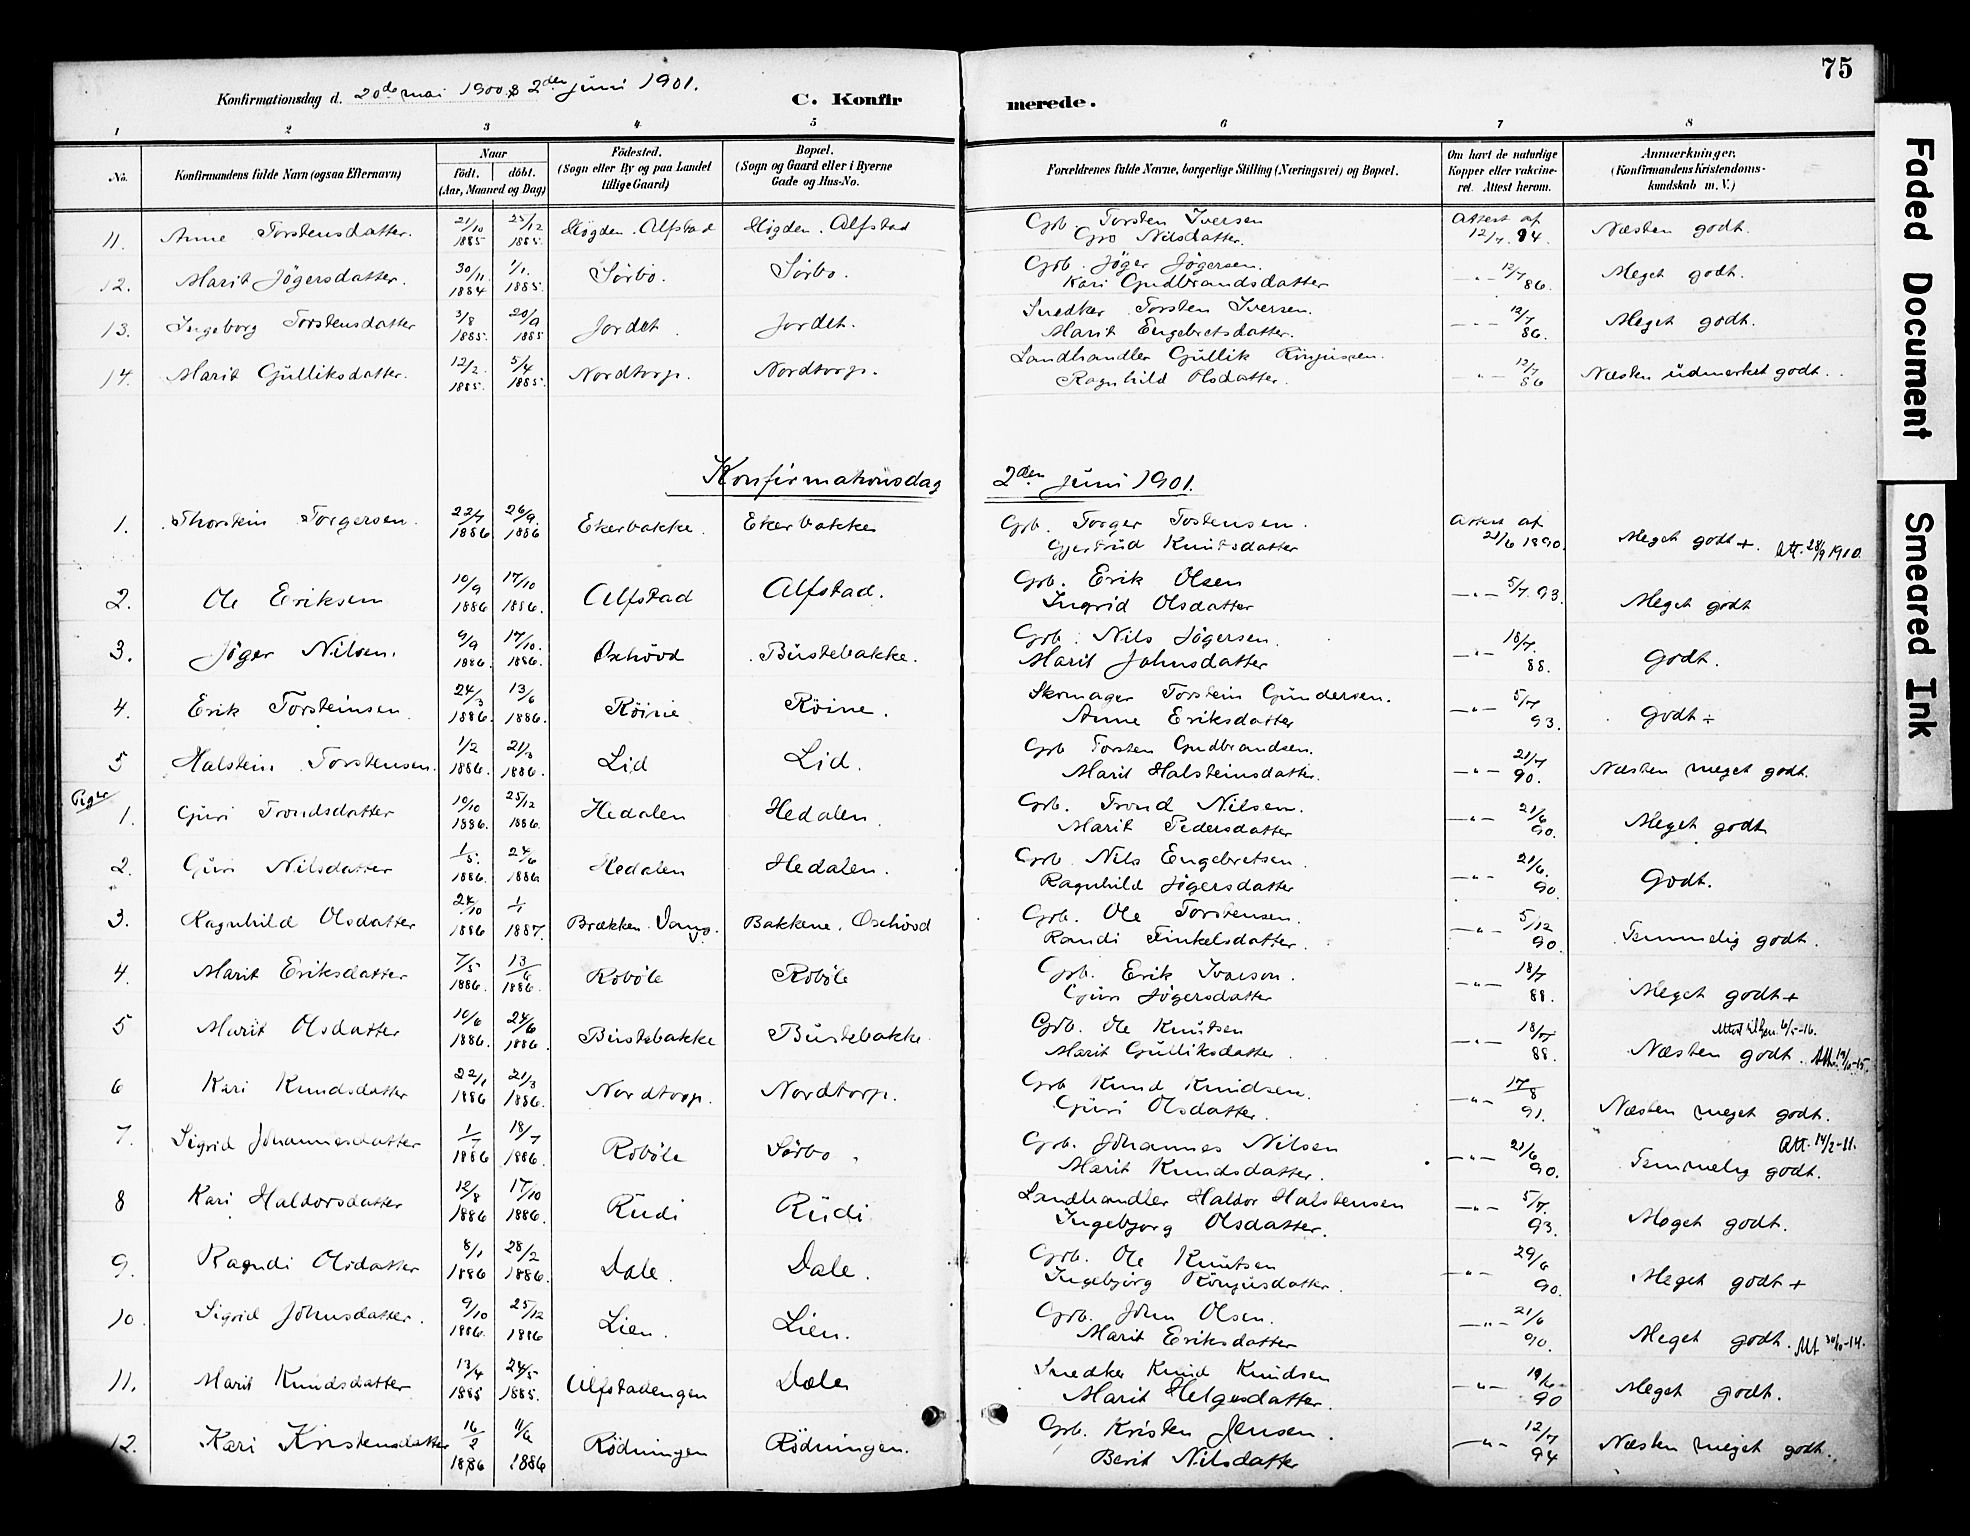 75
Konfirmationsdag d. 20de mai 1900 & 2den juni 1901.
C. Konfirmerede.
1 2 3 4 5 6 7 8
No. Konfirmandens fulde Navn (ogsaa Efternavn) Naar födt. döbt. (Aar, Maaned og Dag) Födested. (Sogn eller By og paa Landet tillige Gaard) Bopæl. (Sogn og Gaard eller i Byerne Gade og Hus-No. Forældrenes fulde Navne, borgerlige Stilling (Næringsvei) og Bopæl. Om havt de naturlige Kopper eller vakcineret. Attest herom. Anmærkninger. (Konfirmandens Kristendomskundskab m. V.)
11. Anne Torstensdatter. 21/10 1885 25/12 1885. Högden. Alfstad Högden. Alfstad Grb. Torsten Iversen Attest af Næsten godt.
Gro Nilsdatter. 12/7. 94.
12. Marit Jögersdatter. 30/11. 1884 1/1. 1885. Sörbö. Sörbo. Grb. Jöger Jögersen. 12/7 86. Meget godt.
Kari Gudbrandsdatter
13. Ingeborg Torstensdatter 3/8 1885. 20/9 1885 Jordet. Jordet. Snedker Torsten Iversen. 12/7 86. Meget godt.
Marit Engebretsdatter.
14. Marit Gulliksdatter. 12/2. 1885. 5/4 1885. Nordtorp. Nordtorp. Landhandler Gullik 12/7 86 Næsten üdmerket godt.
Ragnhild Olsdatter.
Konfirmationsdag 2den juni 1901.
1. Thorstein Torgersen. 22/7 1886 26/9. 1886 Ekerbakke. Ekerbakke Grb. Torger Tostensen. Attest af 21/6 1890. Meget godt +. Att. 28/9 1910.
Gjertrud Knutsdatter
2. Ole Eriksen 10/9 1886 17/10 1886. Alfstad Alfstad. Grb. Erik Olsen —"— 5/7. 93. Meget godt
Ingrid Olsdatter
3. Jöger Nilsen. 9/9 1886. 17/10. 1886. Oschövd Büstebakke. Grb. Nils Jögersen. —"— 18/7. 88. Godt.
Marit Johnsdatter
4. Erik Torsteinsen 24/3 1886. 13/6 1886. Röine Röine. Skomager Torstein Gündersen. —"— 5/7 93. Godt ÷
Anne Eriksdatter
5 Halstein Torstensen. 1/2 1886. 21/3 1886. Lid Lid. Grb Torsten Gudbrandsen. —"— 21/7 90. Næsten meget godt.
Marit Halsteinsdatter.
Piger
1. Guri Trondsdatter 10/10 1886. 25/12 1886. Hedalen Hedalen. Grb. Trond Nilsen. —"— 21/6 90. Meget godt
Marit Pedersdatter
2. Guri Nilsdatter 1/5. 1886. 24/6 1886 Hedalen Hedalen. Grb. Nils Engebretsen. —"— 21/6. 90. Godt.
Ragnhild Jögersdatter
3. Ragnhild Olsdatter 24/10 1886 1/1 1887. Brækken. Vang. Bakkene. Oschövd Grb. Ole Torstensen. —"— 5/12 90. Temmelig godt.
Randi Finkelsdatter.
4. Marit Eriksdatter 7/5 1886. 13/6 1886. Robøle Robøle Grb. Erik Ivarson. —"— 18/7 88. Meget godt +
Guri Jögersdatter
5 Marit Olsdatter 10/6 1886. 24/6 1886. Büstebakke Büstebakke. Grb. Ole Knütsen —"— 18/7 88. Næsten godt.
Marit Gülliksdatter.
6 Kari Knudsdatter 22/1 1886 21/3 1886. Nordtorp. Nordtorp. Grb Knud Knüdsen. —"— 17/8 91. Næsten meget godt.
Güri Olsdatter.
7. Sigrid Johannesdatter 1/7 1886 18/7 1886. Robøle Sørbo. Grb. Johannes Nilsen —"— 21/6 90. Temmelig godt. Att. 14/2-11.
Marit Knudsdatter.
8 Kari Haldorsdatter 12/8 1886 17/10 1886. Rüdi Rüdi Landhandler Haldor Halstensen —"— 5/7. 93. Meget godt.
Ingebjorg Olsdatter.
9. Ragndi Olsdatter 8/1 1886 28/2 1886. Dale. Dale. Grb. Ole Knütsen —"— 29/6 90. Meget godt +
Ingebjörg
10. Sigrid Johnsdatter. 9/10 1886. 25/12 1886 Lien. Lien. Grb. John Olsen. —"— 21/6 90. Meget godt.
Marit Eriksdatter
11. Marit Knudsdatter 13/4 1885 24/5 1885. Alfstadengen Dale Snedker Knud Knudsen —"— 19/6. 90 Meget godt.
Marit Helgesdatter.
12. Kari Kristensdatter 16/2 1886 1886 Rödningen Rödningen. Grb. Kristen Jensen. —"— 12/7 94 Næsten meget godt.
Berit Nilsdatter
Faded Document
Smeared Ink